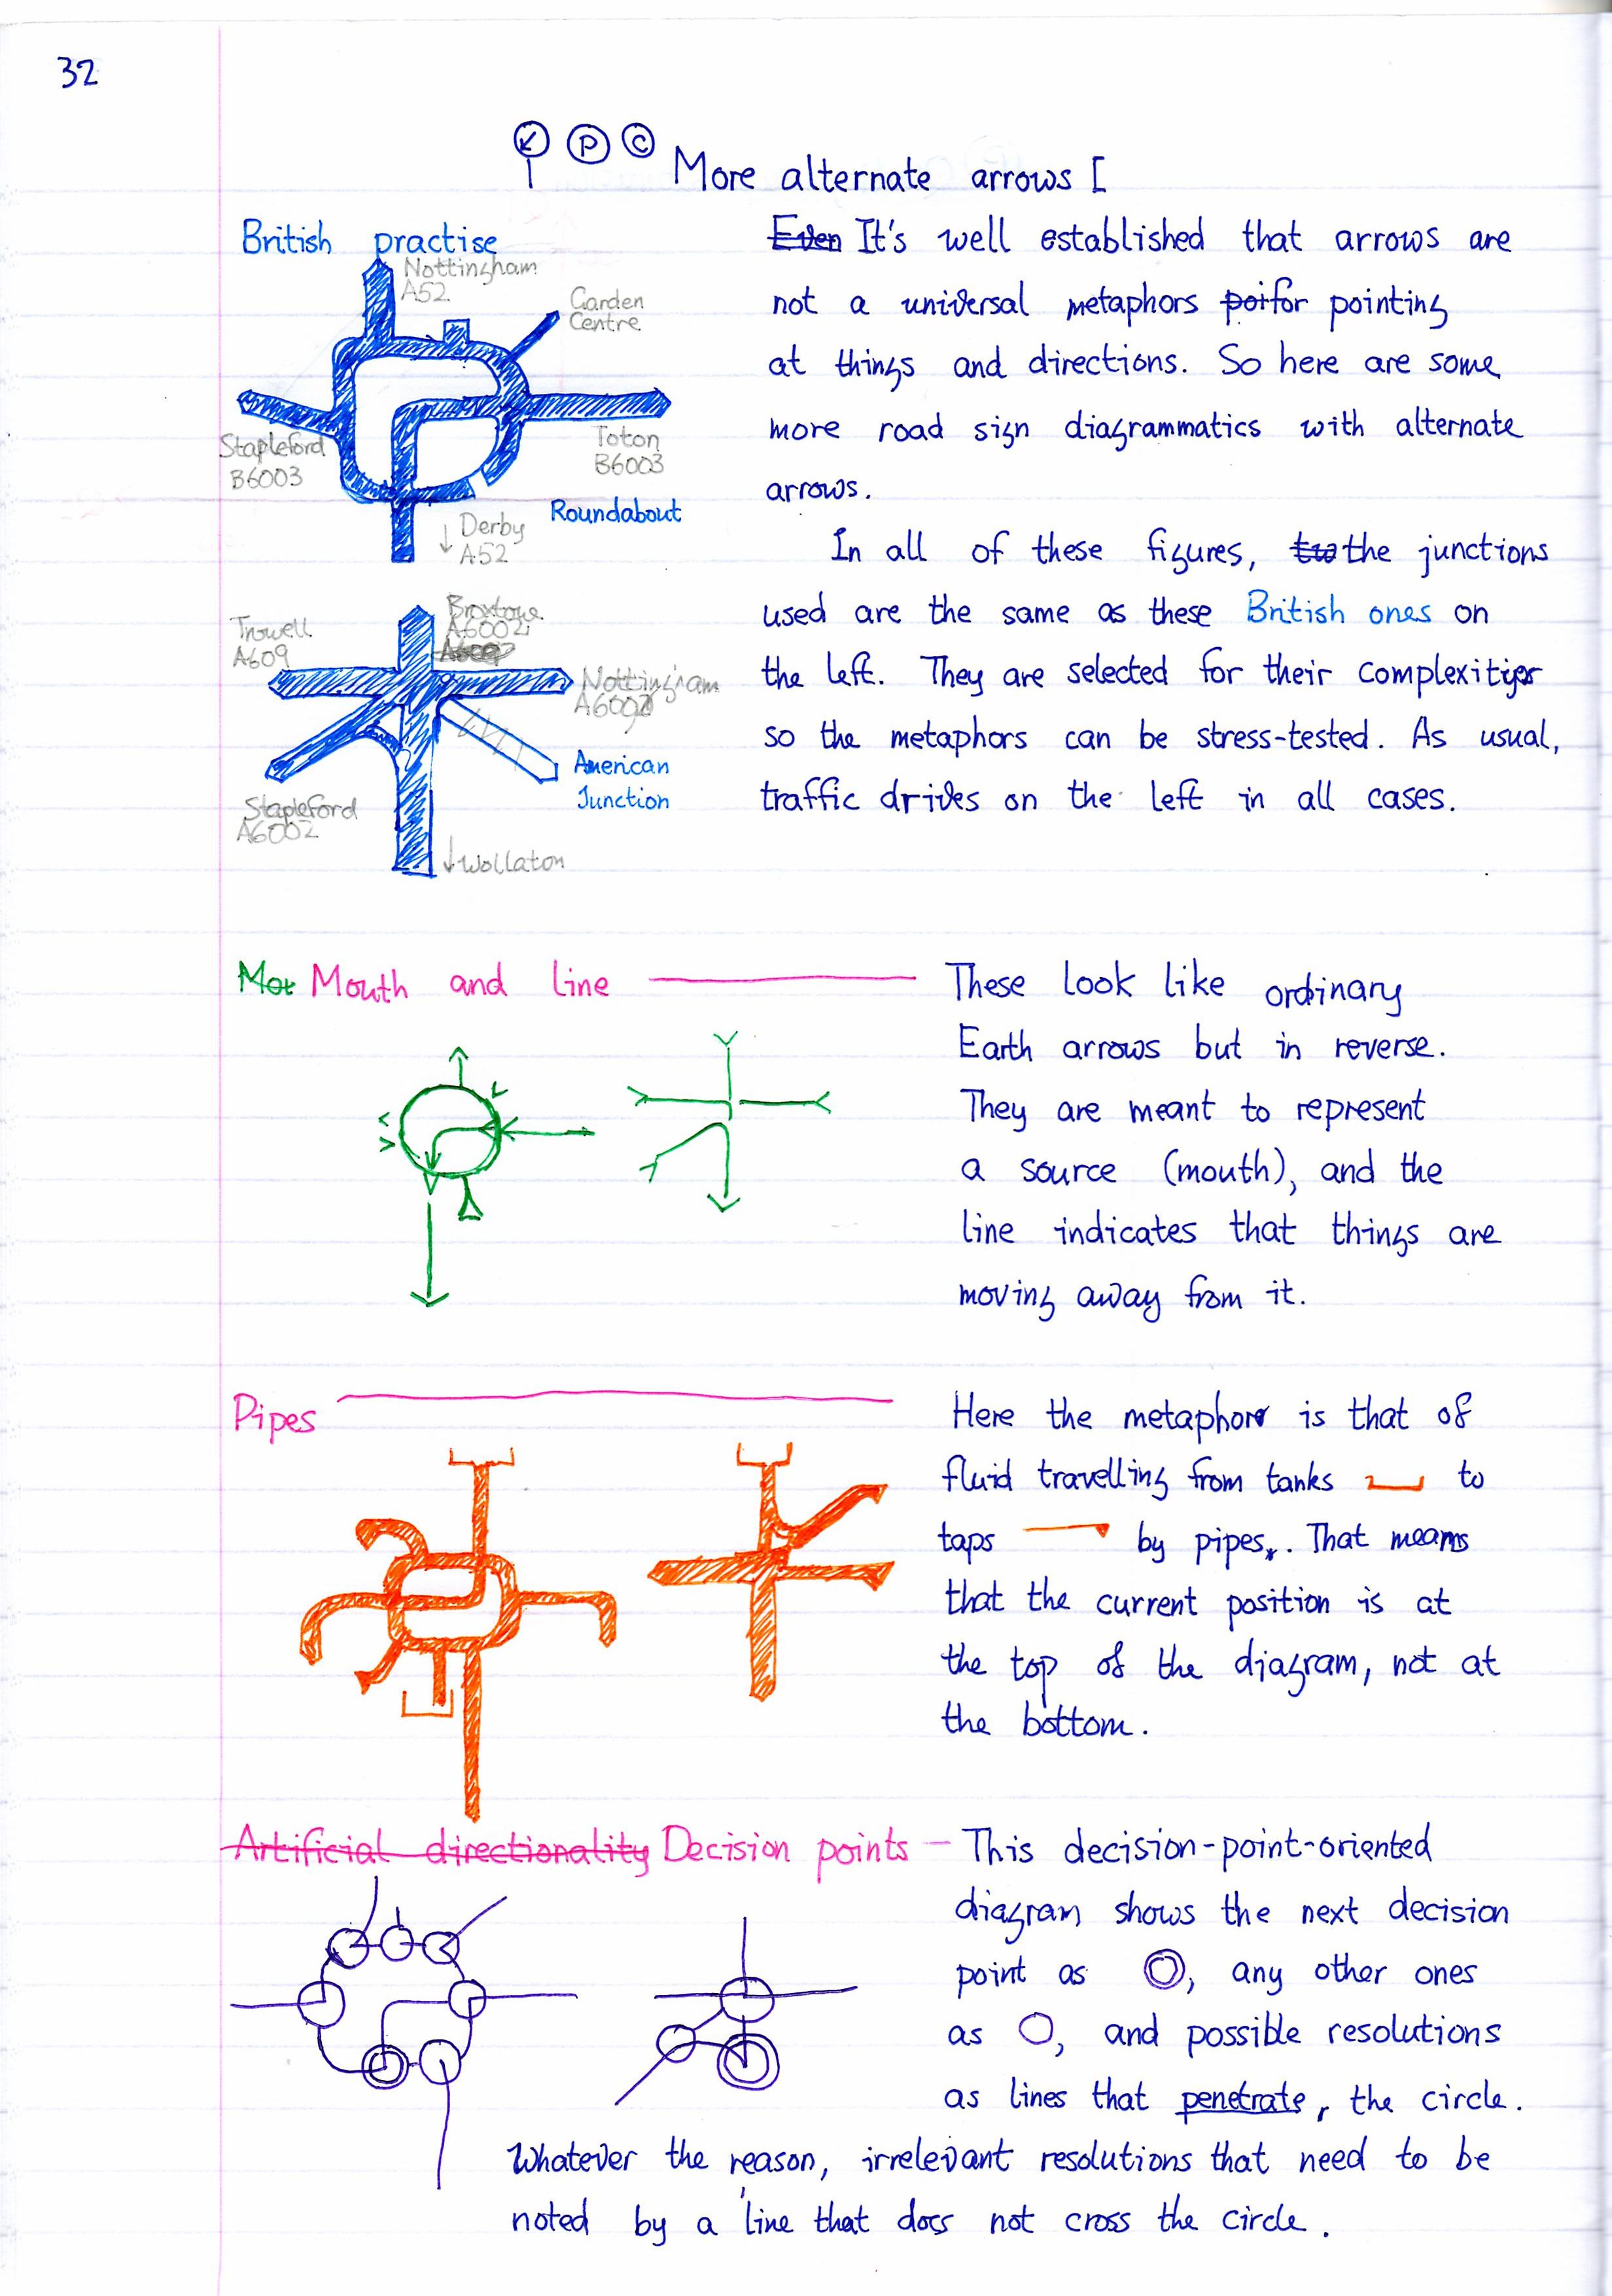 32
↙ P C More alternate arrows [
British practise
Nottingham
A52
Garden
Centre
Stapleford
B6003
Toton
B6003
Roundabout
↓ Derby
A52
Even It's well established that arrows are
not a universal metaphors poi for pointing
at things and directions. So here are some
more road sign diagrammatics with alternate
arrows.
In all of these figures, tw the junctions
used are the same as these British ones on
the left. They are selected for their complexities
so the metaphors can be stress-tested. As usual,
traffic drives on the left in all cases.
Trowell
A609
Broxtowe
A6002
Nottingham
Stapleford
A6002
American
Junction
↓ Wollaton
Mot Mouth and line
These look like ordinary
Earth arrows but in reverse.
They are meant to represent
a source (mouth), and the
line indicates that things are
moving away from it.
Pipes
Here the metaphor is that of
fluid travelling from tanks to
taps by pipes. That means
that the current position is at
the top of the diagram, not at
the bottom.
Artificial directionality Decision points - This decision-point-oriented
diagram shows the next decision
point as ◎, any other ones
as ○, and possible resolutions
as lines that penetrate, the circle.
Whatever the reason, irrelevant resolutions that need to be
noted by a line that does not cross the circle.